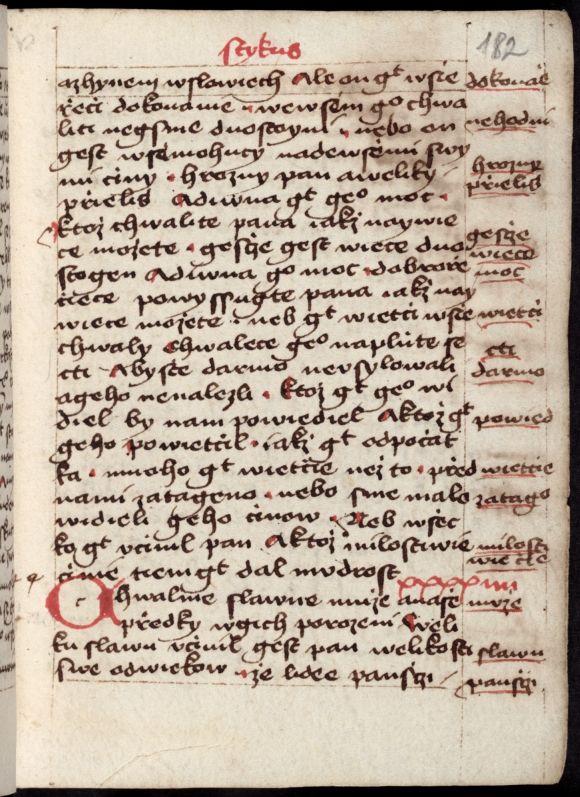 Stykus
182
azhynem wslowiech Ale on gt wsie
řeči dokonanie wewsem go chwa
liti negsme duostoyni nebo on
gest wsemohucy nadewsemi swy
mi činy hrozny pan aweliky
přielis Adiwna gt geo moc
ktoz chwalite pana iakz naywie
ce mozete gesstie gest wiece duo
stogen Adiwna go moc dobroře
čiece powyssugte pana iakz nay
wiece mozete neb gt wietci wsie
chwaly chwalece geo naplnte se
cti Abyste darmo neusylowali
ageho nenalezli ktoz gt geo wi
diel by nam powiediel Aktoz gt
geho powietcil iakz gt odpočat
ka mnoho gt wietcie nez to před
nami zatageno nebo sme malo
widieli geho činow Neb wsec
ko gt včinil pan Aktoz milostiwie
činie tiem gt dal mudrost
xxxxiiii
Chwalme slawne muze anasse
předky wgich porozeni Weli
ku slawu včinil gest pan welikosti
swe odwiekow ze lidee pansczi
dokonale
nehodni
hrozny
přielis
gesstie
wiece
moc
wietci
cti
darmo
powied
wietcie
zatago
milosti
wie cle
muze
slawu
pansczi